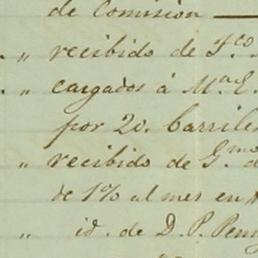 de Comision
" recibido de F.co
" cargados á M.a E.
por 20. barriles
" recibido de G.mo d
de 1% al mes en
" id. de D. P. Penn